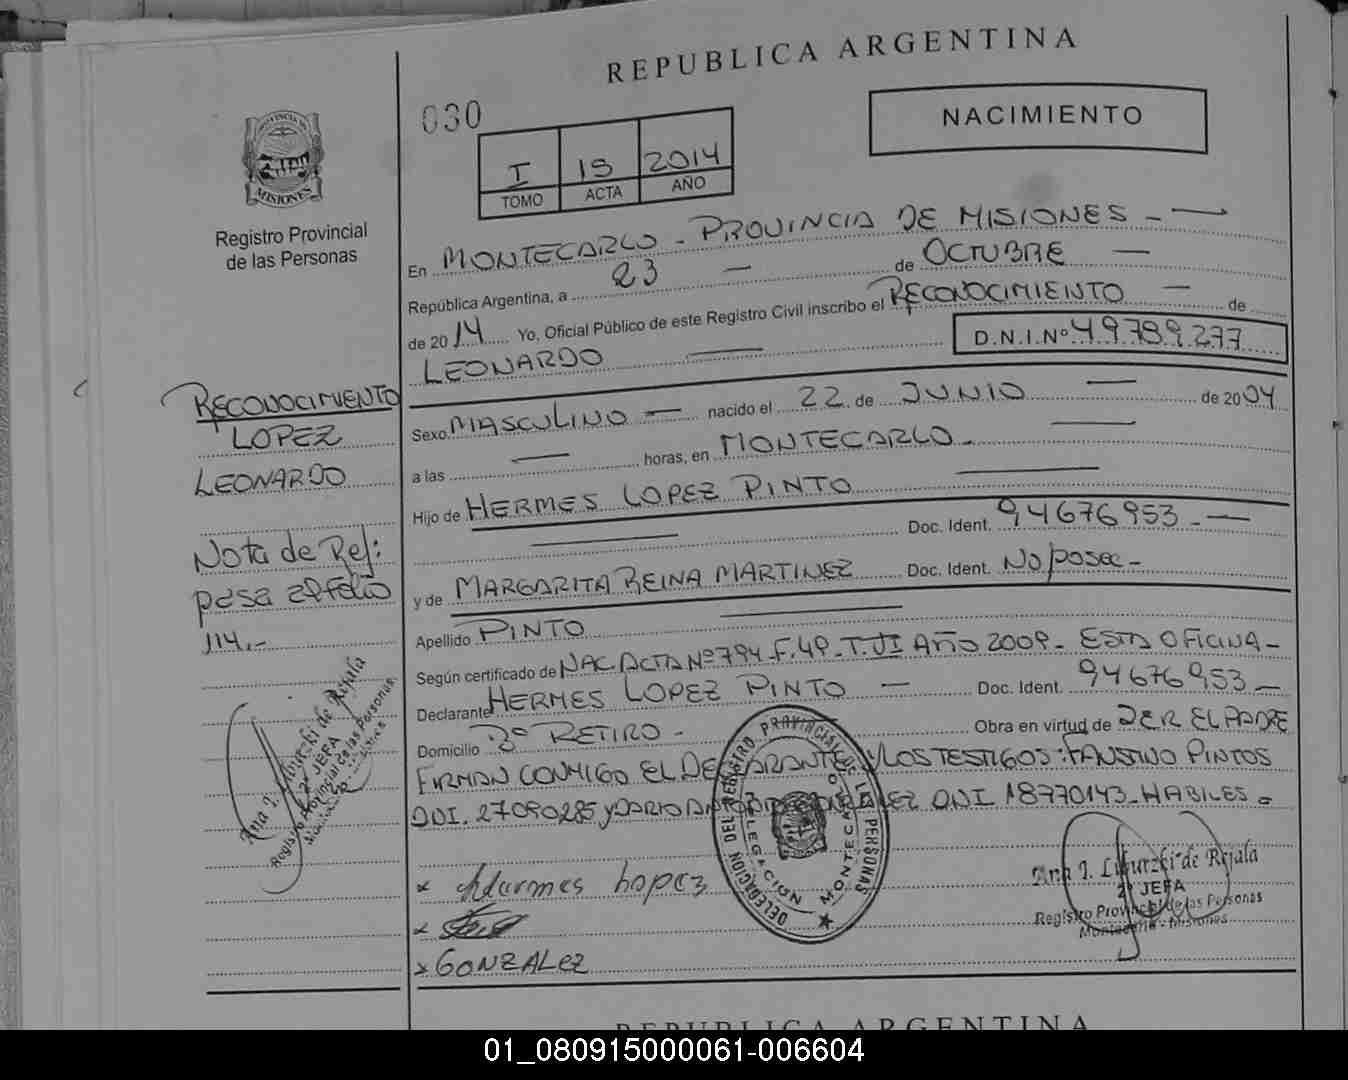 REPUBLICA ARGENTINA
030
NACIMIENTO
I 19 2014
TOMO ACTA AÑO
PROVINCIA DE
MISIONES
Registro Provincial
de las Personas
En MONTECARLO - PROVINCIA DE MISIONES -
República Argentina, a 23 de OCTUBRE
de 2014 Yo, Oficial Público de este Registro Civil inscribo el RECONOCIMIENTO de
LEONARDO D.N.I.Nº 49.789.277
Sexo MASCULINO nacido el 22 de JUNIO de 2004
a las horas, en MONTECARLO -
Hijo de HERMES LOPEZ PINTO
Doc. Ident. 94676953 -
y de MARGARITA REINA MARTINEZ Doc. Ident. No posee -
Apellido PINTO
Según certificado de NAC. ACTA Nº 794 - F. 49 - T. VI AÑO 2009 - ESTA OFICINA -
Declarante HERMES LOPEZ PINTO Doc. Ident. 94676953 -
Domicilio Bº RETIRO - Obra en virtud de SER EL PADRE
FIRMAN CONMIGO EL DECLARANTE Y LOS TESTIGOS: FAUSTINO PINTOS
DNI. 27090285 y DARIO GONZALEZ DNI 18770143 - HABILES -
x Hermes Lopez
x
x GONZALEZ
RECONOCIMIENTO
LOPEZ
LEONARDO
Nota de Ref:
pasa al folio
114.-
Ana I. de Rejala
2º JEFA
Registro Provincial de las Personas
DELEGACION DEL REGISTRO PROVINCIAL DE LAS PERSONAS
DELEGACION MONTECARLO
Ana I. de Rejala
2º JEFA
Registro Provincial de las Personas
Montecarlo - Misiones
REPUBLICA ARGENTINA
01_080915000061-006604